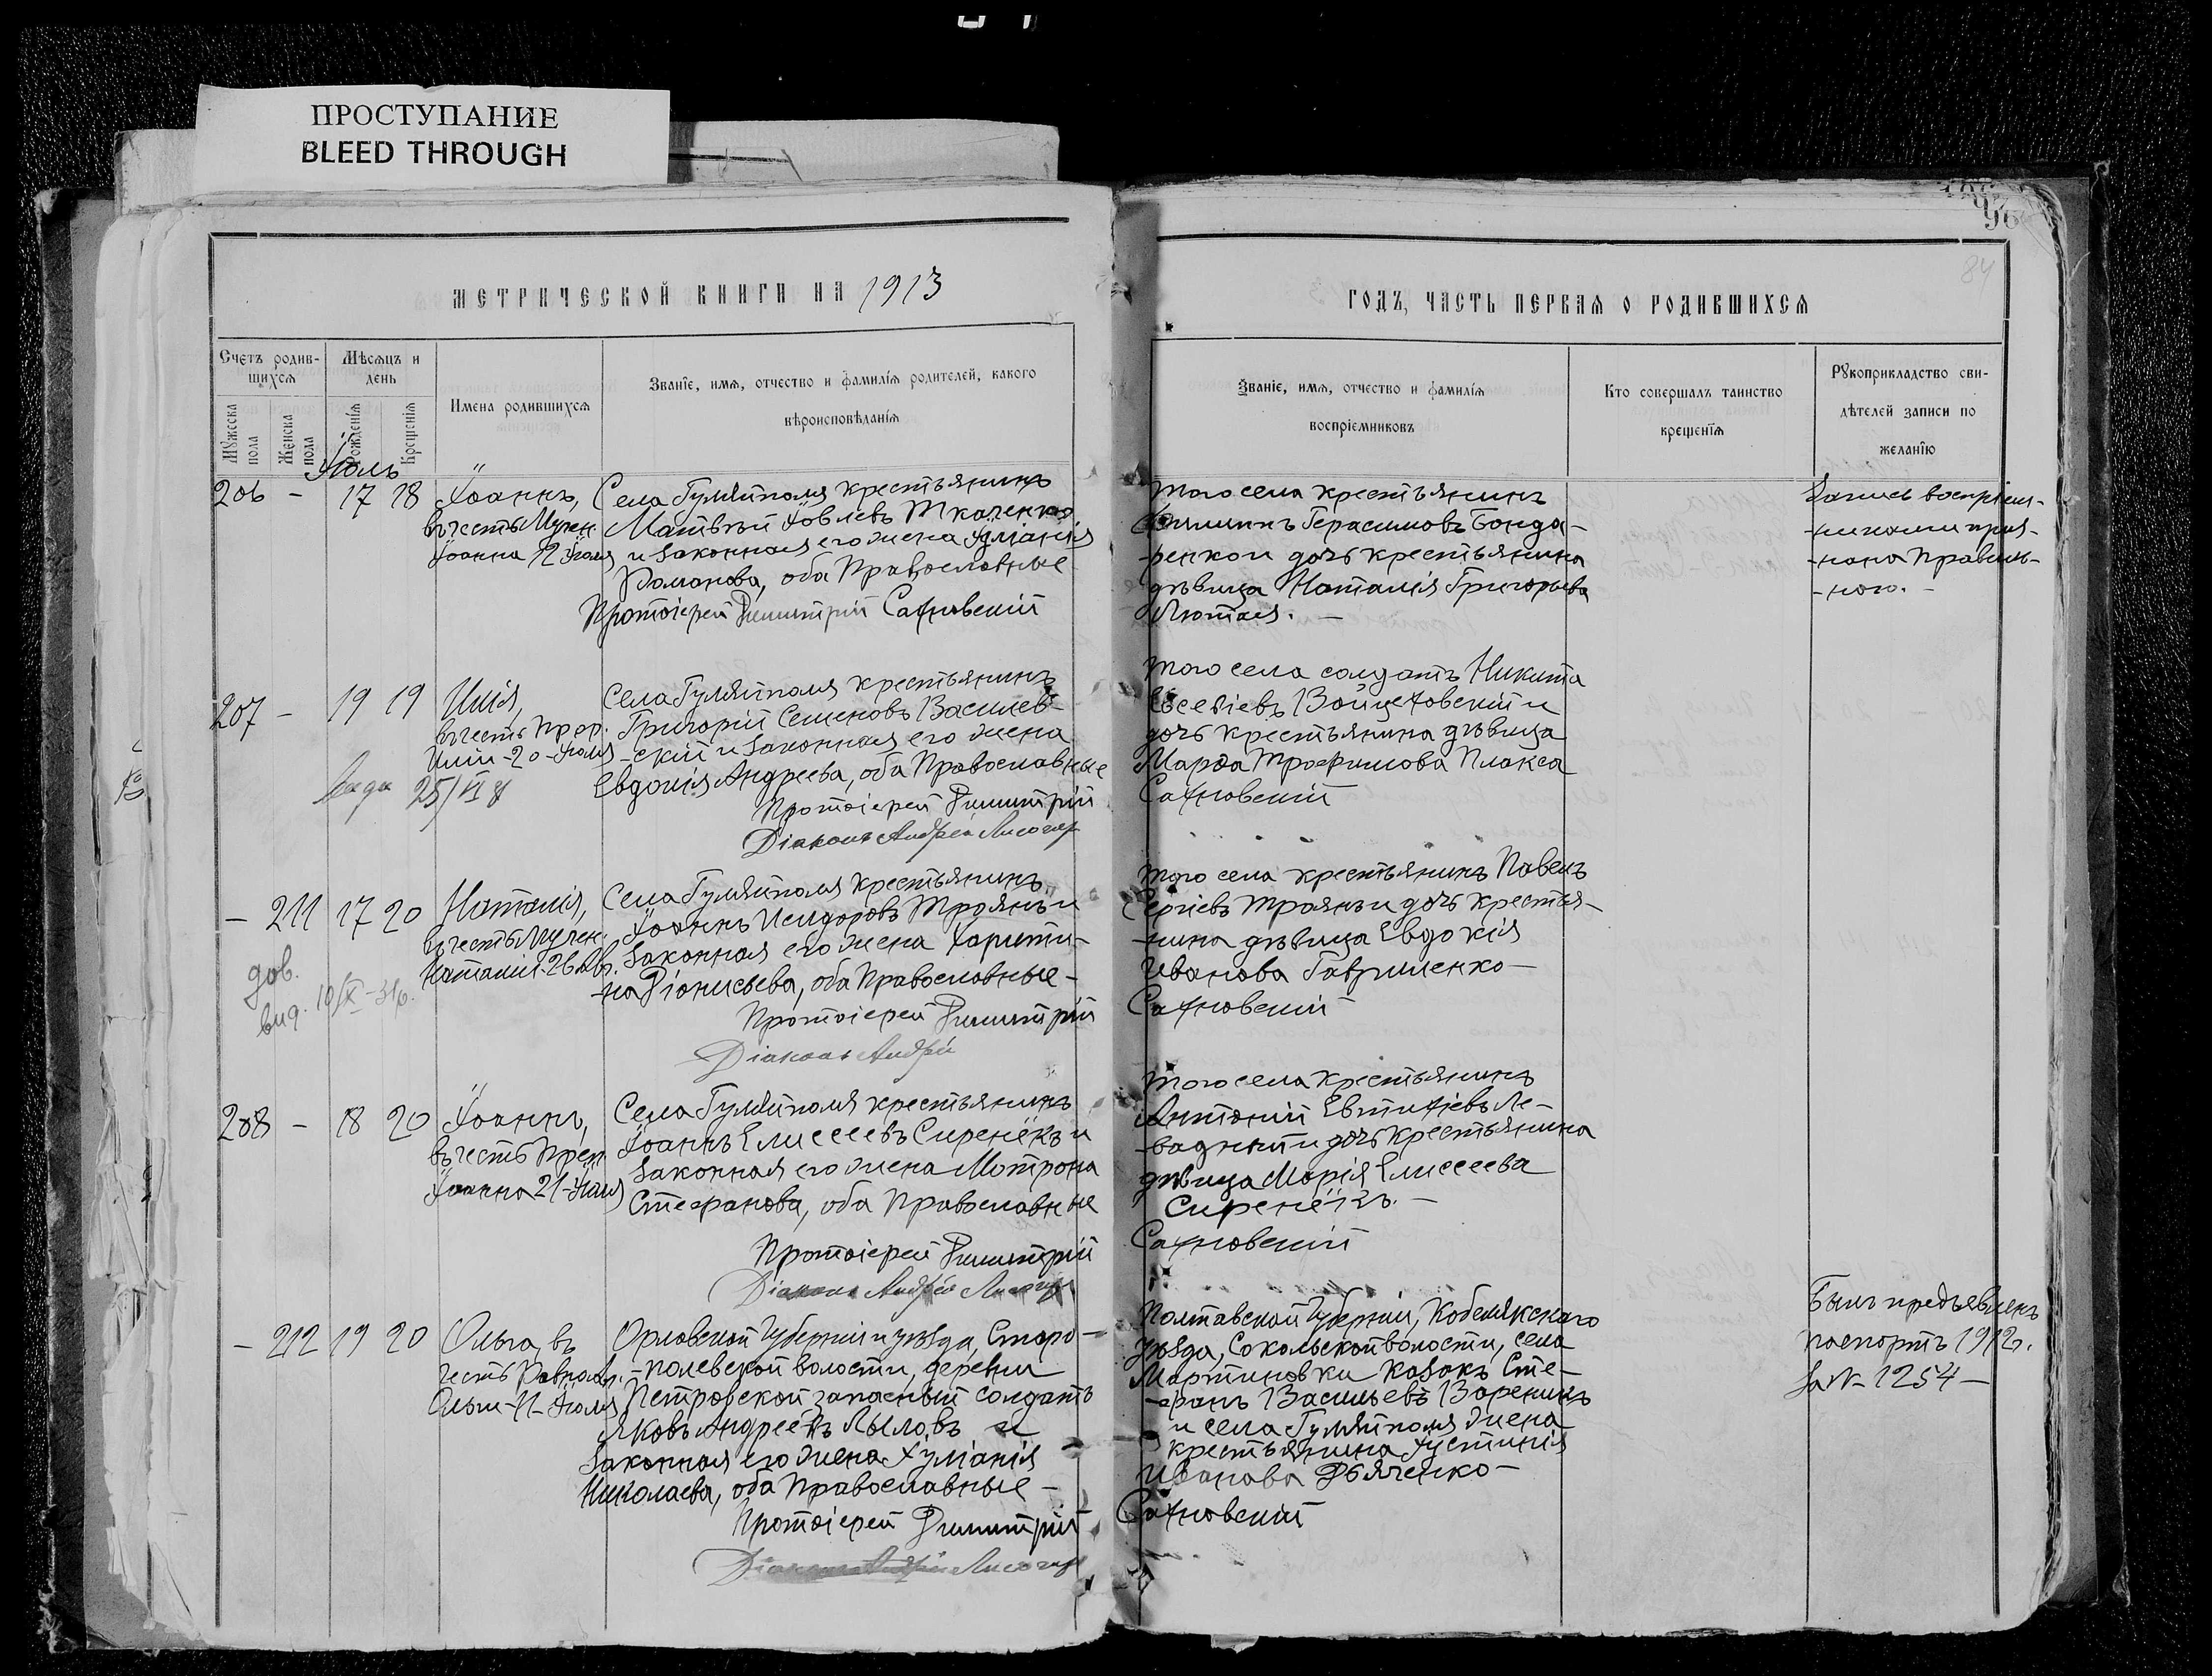 ПРОСТУПАНИЕ
BLEED THROUGH
93
84
МЕТРИЧЕСКОЙ КНИГИ НА 1913
ГОДЪ, ЧАСТЬ ПЕРВАЯ О РОДИВШИХСЯ
Счетъ родив-
шихся
Мѣсяцъ и
день
Мужеска
пола
Женска
пола
Рожденія
Крещенія
Имена родившихся
Званіе, имя, отчество и фамилія родителей, какого
вѣроисповѣданія
Званіе, имя, отчество и фамилія
воспріемниковъ
Кто совершалъ таинство
крещенія
Рукоприкладство сви-
дѣтелей записи по
желанію
Іюль
206 - 17 18
Іоаннъ,
въ честь Мучен.
Іоанна 12 Іюля
Села Гуляйполя крестьянинъ
Матвѣй Іовлевъ Ткаченко
и законная его жена Іуліанія
Романова, оба Православные
Протоіерей Димитрій Сахновскій
того села крестьянинъ
Филиппъ Герасимовъ Бонда-
ренко и дочь крестьянина
дѣвица Наталія Григорьева
Лютая. -
Запись воспріем-
-никами приз-
-нана правиль-
-ною. -
207 - 19 19
Илія,
въ честь Прор.
Иліи - 20 - Іюля
Села Гуляйполя крестьянинъ
Григорій Семеновъ Василев-
-скій и законная его жена
Евдокія Андреева, оба Православные
Протоіерей Димитрій
Діаконъ Андрей Лисогор
того села солдатъ Никита
Евсевіевъ Войцеховскій и
дочь крестьянина дѣвица
Марѳа Трофимова Плакса
Сахновскій
25/VI
- 211 17 20
Наталія,
въ честь Мучен.
Наталіи - 26 Авг.
дов.
вид. 10/X - 31 р.
Села Гуляйполя крестьянинъ
Іоаннъ Исидоровъ Троянъ и
законная его жена Харити-
-на Діонисьева, оба Православные -
Протоіерей Димитрій
Діаконъ Андрей
того села крестьянинъ Павелъ
Сергіевъ Троянъ и дочь крестья-
-нина дѣвица Евдокія
Иванова Гавриленко -
Сахновскій
208 - 18 20
Іоаннъ,
въ честь Преп.
Іоанна 21 - Іюля
Села Гуляйполя крестьянинъ
Іоаннъ Елисеевъ Сиренёкъ и
законная его жена Мотрона
Стефанова, оба Православные
Протоіерей Димитрій
Діаконъ Андрей Лисогор
того села крестьянинъ
Антоній Евтихіевъ Ле-
-вадный и дочь крестьянина
дѣвица Марія Елисеева
Сиренёкъ. -
Сахновскій
- 212 19 20
Ольга, въ
честь Равноап.
Ольги - 11 - Іюля
Орловской Губерніи и уѣзда, Старо-
-полевской волости, деревни
Петровской запасный солдатъ
Яковъ Андреевъ Лыловъ и
законная его жена Іуліанія
Николаева, оба Православные -
Протоіерей Димитрій
Діаконъ Андрей Лисогор
Полтавской Губерніи, Кобелякскаго
уѣзда, Сокольской волости, села
Мартиновки казакъ Сте-
-фанъ Васильевъ Вареникъ
и села Гуляйполя жена
крестьянина Іустинія
Иванова Дьяченко -
Сахновскій
Былъ предъявленъ
паспортъ 1912 г.
за № 1254 -